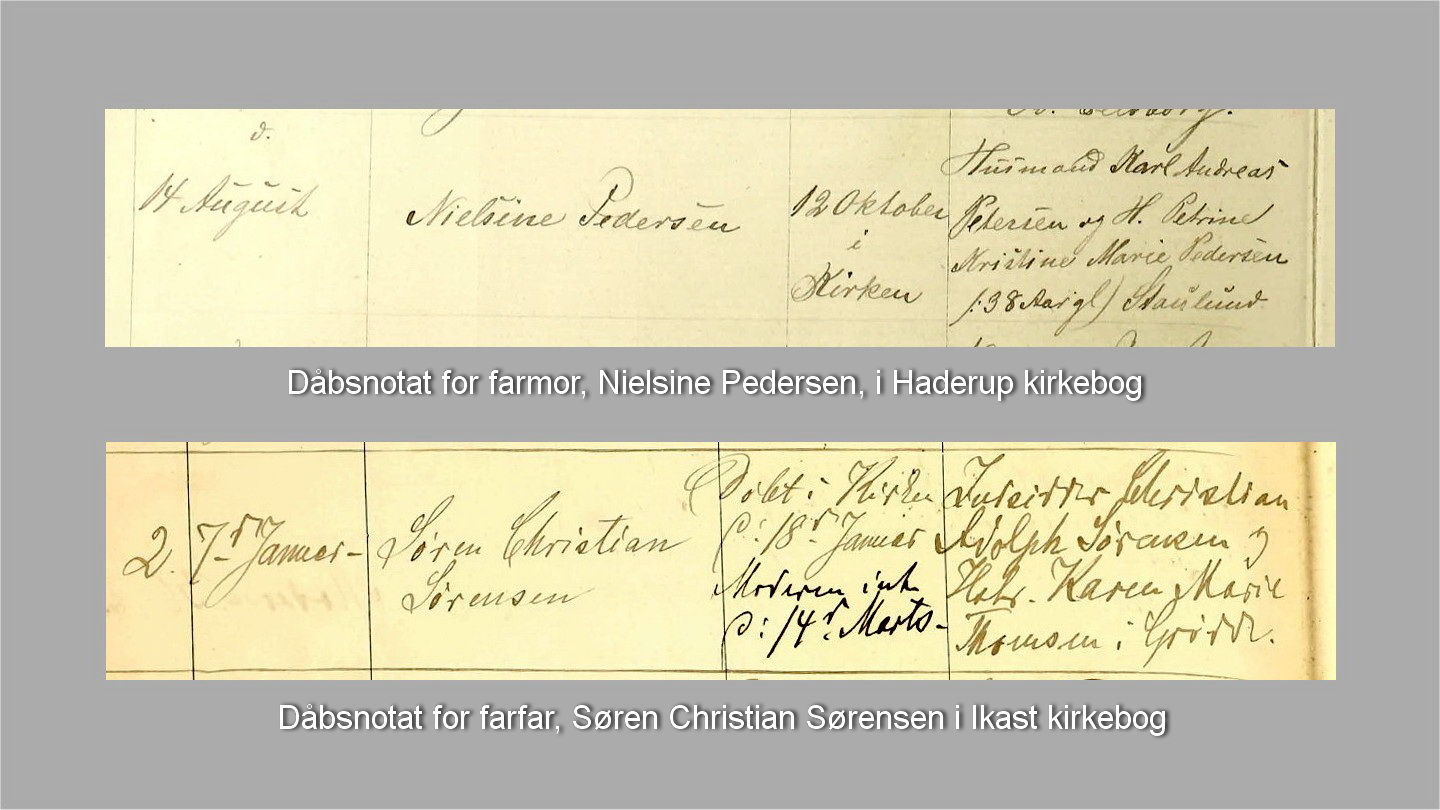 d.
14 August
Nielsine Pedersen
12 Oktober
i
Kirken
Husmand Karl Andreas
Petersen og H. Petrine
Kristine Marie Pedersen
/: 38 Aar gl) Staulund
Dåbsnotat for farmor, Nielsine Pedersen, i Haderup kirkebog
2.
7d Januar-
Søren Christian
Sørensen
Døbt i Kirken
d: 18d Januar
Moderen intr.
d: 14d Marts-
Indsidder Christian
Adolph Sørensen og
Hstr. Karen Marie
Thomsen i
Dåbsnotat for farfar, Søren Christian Sørensen i Ikast kirkebog